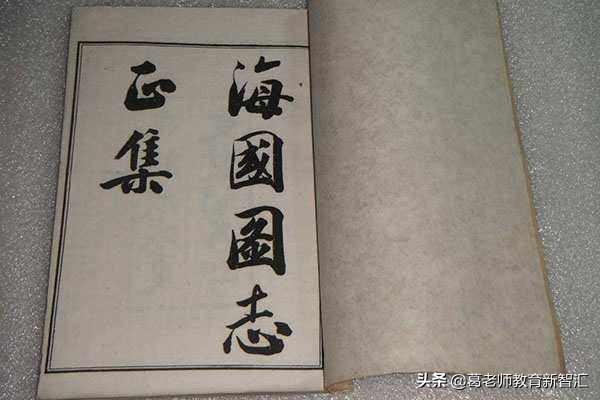 海國圖志
正集
头条 @葛老师教育新智汇